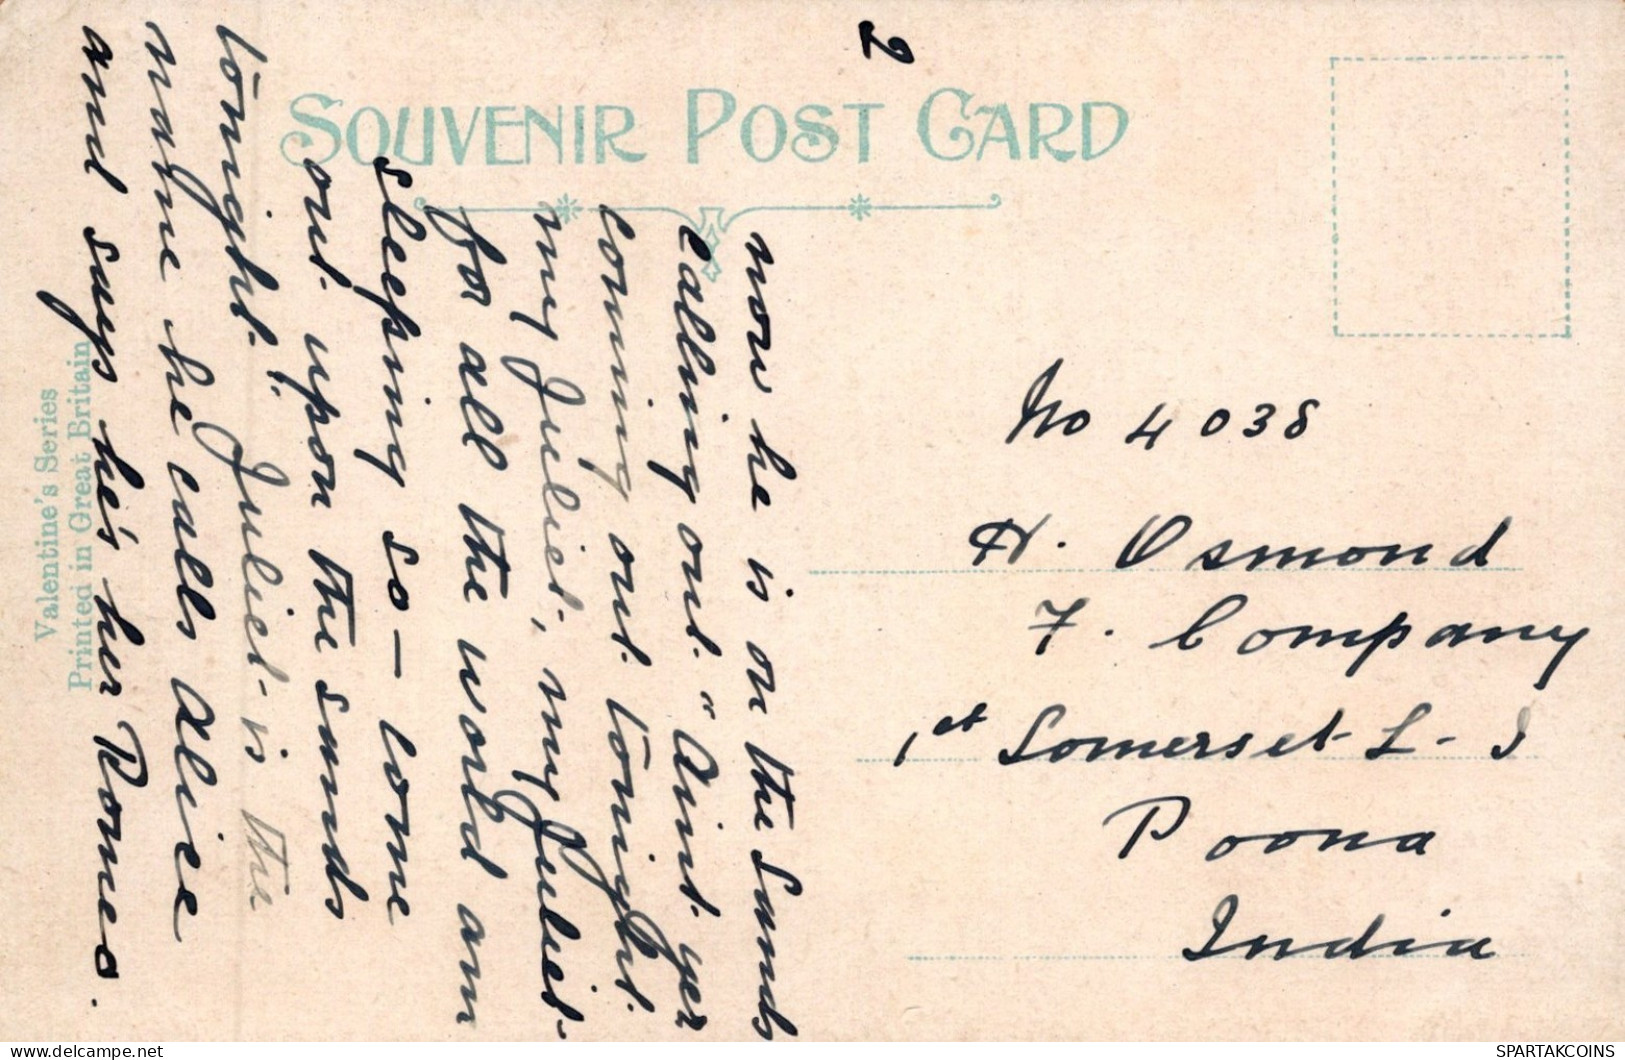 2
SOUVENIR POST CARD
now he is on the Sands
calling out. "Aint yer
coming out tonight.
my Juliet, my Juliet
for all the world am
sleeping so — come
out upon the sands
tonight." Juliet is the
name he calls Alice
and says he's her Romeo.
Valentine's Series
Printed in Great Britain
No 4038
H. Osmond
F. Company
1st Somerset L-I
Poona
India
delcampe.net
SPARTAKCOINS